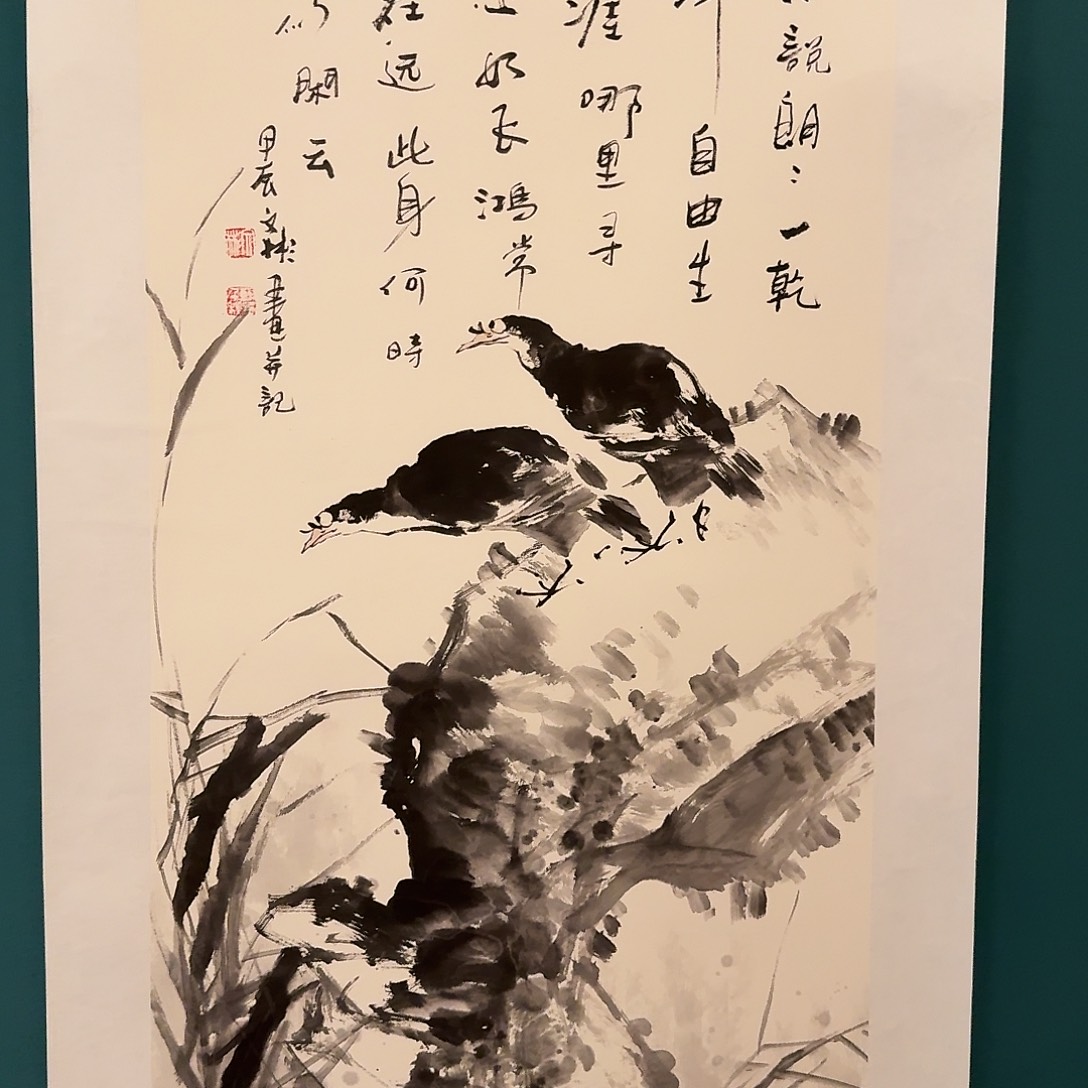 說朗〻一乾
坤自由生
涯哪里寻
如鸿常
在远此身何時
仍閑云
甲辰文彬畫并記